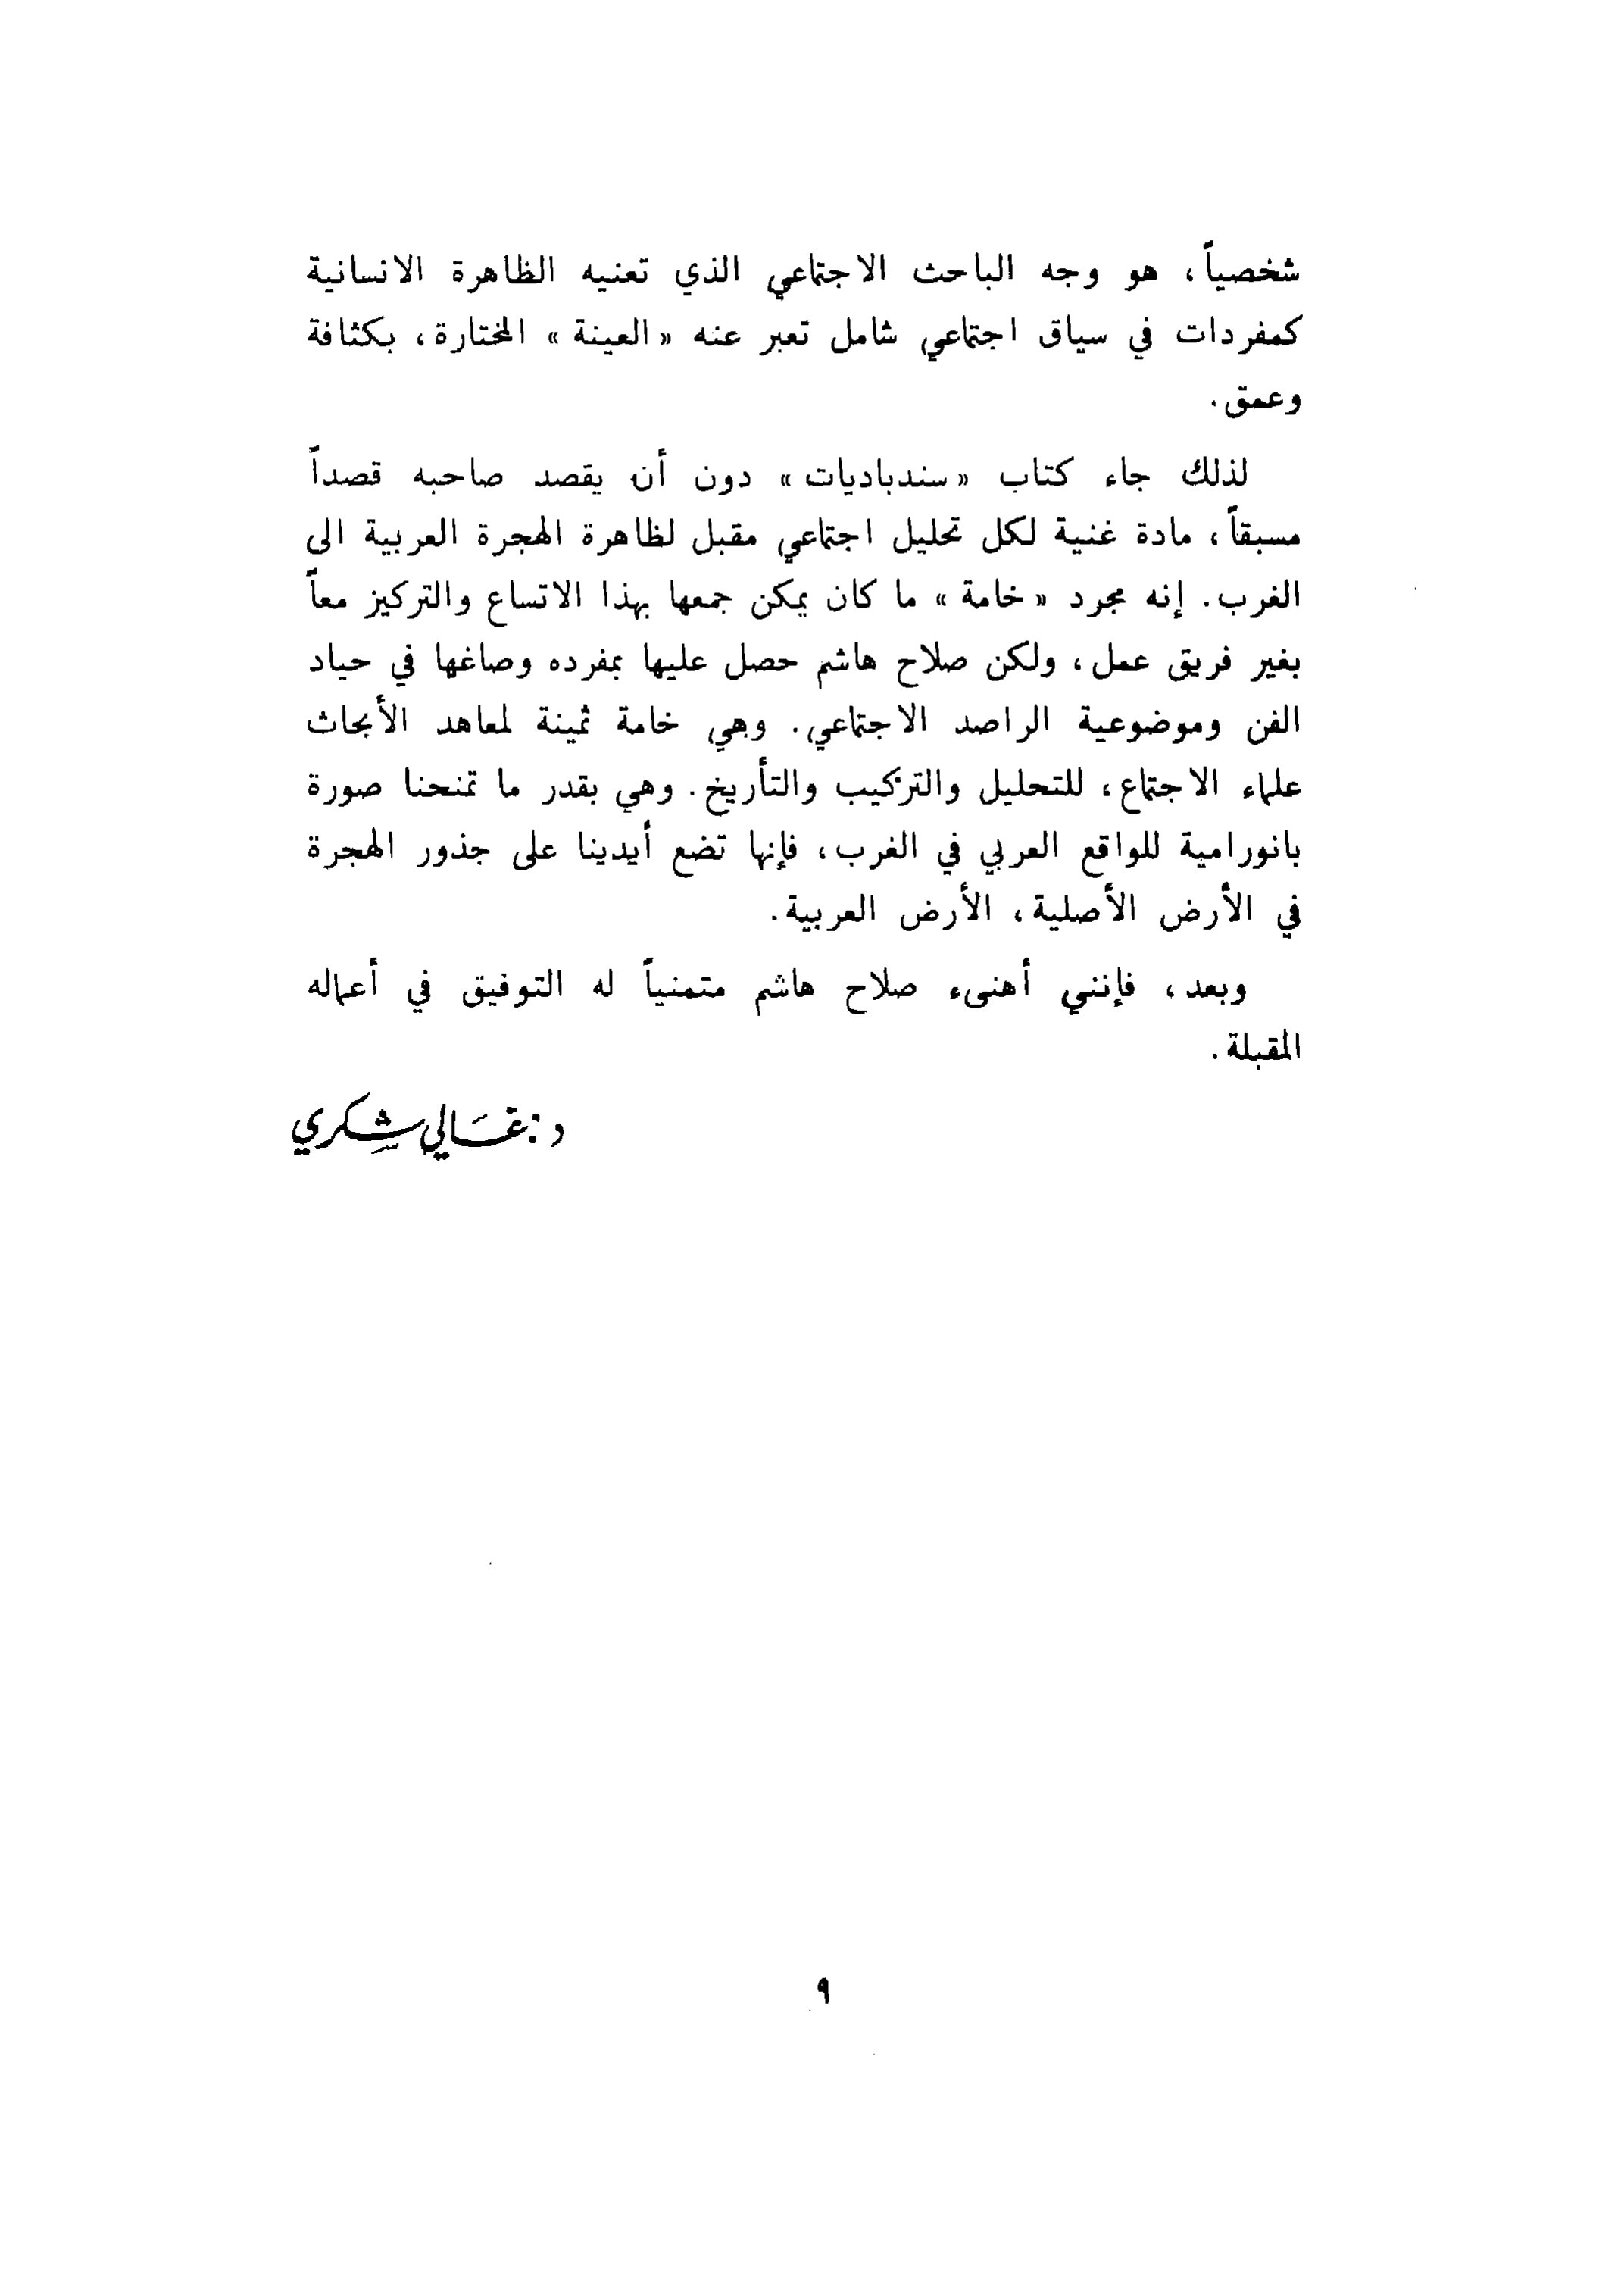 شخصياً، هو وجه الباحث الاجتماعي الذي تعنيه الظاهرة الانسانية
كمفردات في سياق اجتماعي شامل تعبر عنه «العينة» المختارة، بكثافة
وعمق.
لذلك جاء كتاب «سندباديات» دون أن يقصد صاحبه قصداً
مسبقاً، مادة غنية لكل تحليل اجتماعي مقبل لظاهرة الهجرة العربية الى
الغرب. إنه مجرد «خامة» ما كان يمكن جمعها بهذا الاتساع والتركيز معاً
بغير فريق عمل، ولكن صلاح هاشم حصل عليها بمفرده وصاغها في حياد
الفن وموضوعية الراصد الاجتماعي. وهي خامة ثمينة لمعاهد الأبحاث
علماء الاجتماع، للتحليل والتركيب والتأريخ. وهي بقدر ما تمنحنا صورة
بانورامية للواقع العربي في الغرب، فإنها تضع أيدينا على جذور الهجرة
في الأرض الأصلية، الأرض العربية.
وبعد، فإنني أهنىء صلاح هاشم متمنياً له التوفيق في أعماله
المقبلة.
د: غَالي شِكري
٩